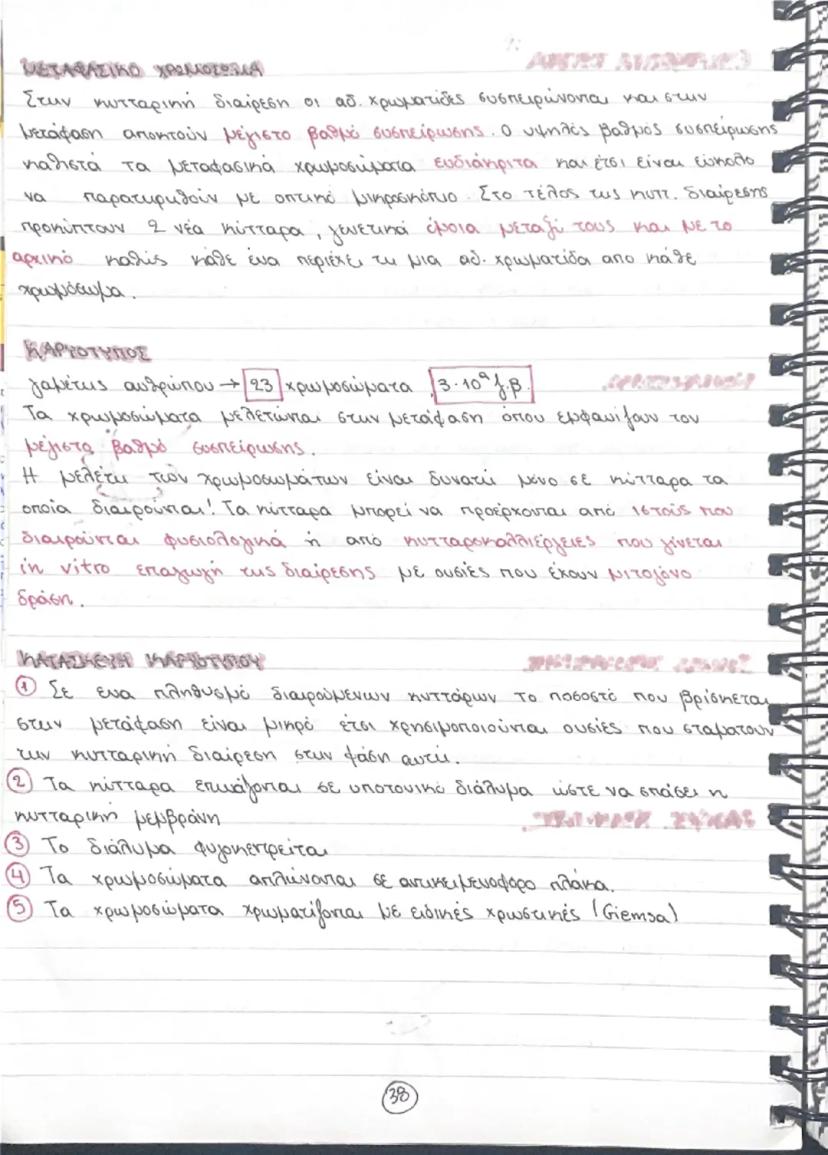 ΜΕΤΑΦΑΣΙΚΟ ΧΡΩΜΟΣΩΜΑ
Στην κυτταρική διαίρεση οι αδ. χρωματίδες συσπειρώνονται και στην
μετάφαση αποκτούν μέγιστο βαθμό συσπείρωσης. Ο υψηλός βαθμός συσπείρωσης
καθιστά τα μεταφασικά χρωμοσώματα ευδιάκριτα και έτσι είναι εύκολο
να παρατηρηθούν με οπτικό μικροσκόπιο. Στο τέλος της κυττ. διαίρεσης
προκύπτουν 2 νέα κύτταρα, γενετικά όμοια μεταξύ τους και με το
αρχικό καθώς κάθε ένα περιέχει τη μια αδ. χρωματίδα απο κάθε
χρωμόσωμα.
ΚΑΡΥΟΤΥΠΟΣ
γαμέτης ανθρώπου → 23 χρωμοσώματα 3·10⁹ ζ.β.
Τα χρωμοσώματα μελετώνται στην μετάφαση όπου εμφανίζουν τον
μέγιστο βαθμό συσπείρωσης.
Η μελέτη των χρωμοσωμάτων είναι δυνατή μόνο σε κύτταρα τα
οποία διαιρούνται! Τα κύτταρα μπορεί να προέρχονται από ιστούς που
διαιρούνται φυσιολογικά ή από κυτταροκαλλιέργειες που γίνεται
in vitro επαγωγή της διαίρεσης με ουσίες που έχουν μιτογόνο
δράση.
ΚΑΤΑΣΚΕΥΗ ΚΑΡΥΟΤΥΠΟΥ
1 Σε ενα πληθυσμό διαιρούμενων κυττάρων το ποσοστό που βρίσκεται
στην μετάφαση είναι μικρό έτσι χρησιμοποιούνται ουσίες που σταματούν
την κυτταρική διαίρεση στην φάση αυτή.
2 Τα κύτταρα επωάζονται σε υποτονικό διάλυμα ώστε να σπάσει η
κυτταρική μεμβράνη
3 Το διάλυμα φυγοκεντρείται
4 Τα χρωμοσώματα απλώνονται σε αντικειμενοφόρο πλάκα.
5 Τα χρωμοσώματα χρωματίζονται με ειδικές χρωστικές (Giemsa)
38